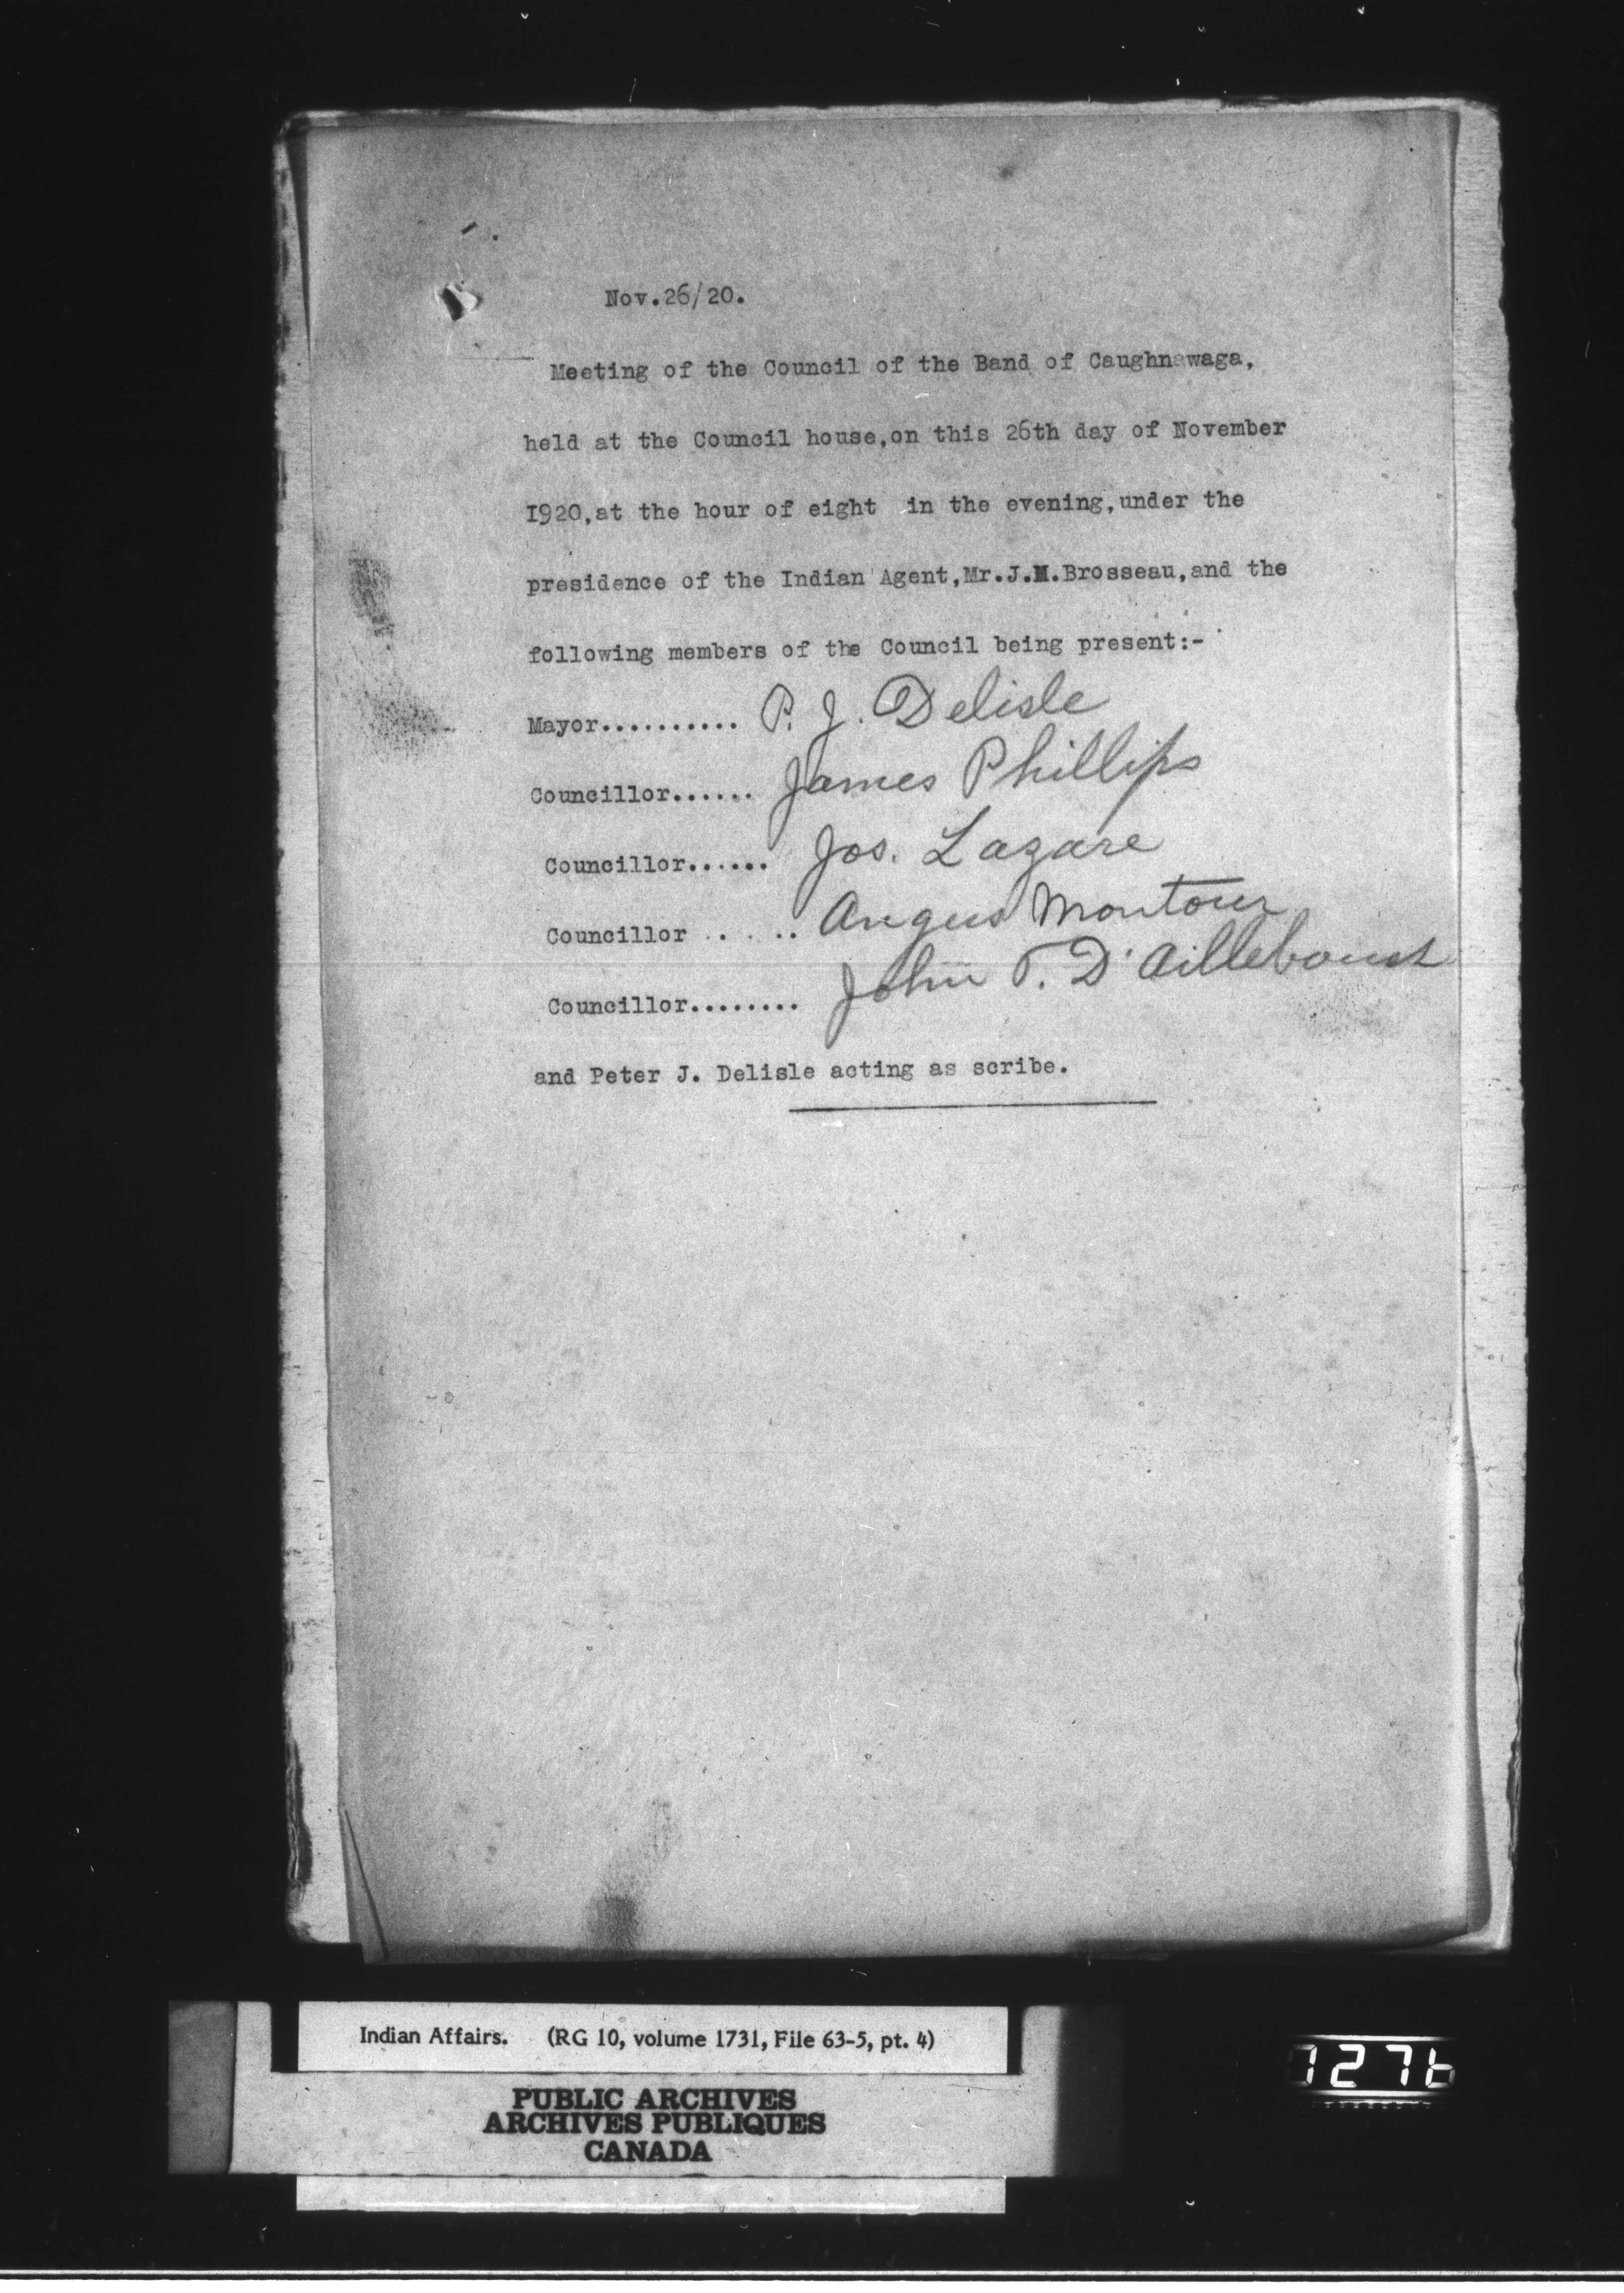 Nov.26/20.
Meeting of the Council of the Band of Caughnawaga,
held at the Council house,on this 26th day of November
I920,at the hour of eight in the evening,under the
presidence of the Indian Agent,Mr.J.M.Brosseau,and the
following members of the Council being present:-
Mayor.......... P. J. Delisle
Councillor...... James Phillips
Councillor...... Jos. Lazare
Councillor . . .. Angus Montour
Councillor........ John T. D'Ailleboust
and Peter J. Delisle acting as scribe.
Indian Affairs. (RG 10, volume 1731, File 63-5, pt. 4)
PUBLIC ARCHIVES
ARCHIVES PUBLIQUES
CANADA
1276